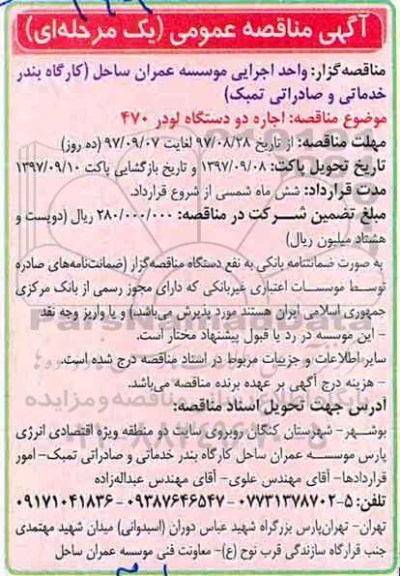 آگهی مناقصه عمومی (یک مرحله‌ای)
مناقصه‌گزار: واحد اجرایی موسسه عمران ساحل (کارگاه بندر
خدماتی و صادراتی تمبک)
موضوع مناقصه: اجاره دو دستگاه لودر ۴۷۰
مهلت مناقصه: از تاریخ ۹۷/۰۸/۲۸ لغایت ۹۷/۰۹/۰۷ (ده روز)
تاریخ تحویل پاکت: ۱۳۹۷/۰۹/۰۸ و تاریخ بازگشایی پاکت ۱۳۹۷/۰۹/۱۰
مدت قرارداد: شش ماه شمسی از شروع قرارداد.
مبلغ تضمین شرکت در مناقصه: ۲۸۰/۰۰۰/۰۰۰ ریال (دویست و
هشتاد میلیون ریال)
به صورت ضمانتنامه بانکی به نفع دستگاه مناقصه‌گزار (ضمانت‌نامه‌های صادره
توسط موسسات اعتباری غیربانکی که دارای مجوز رسمی از بانک مرکزی
جمهوری اسلامی ایران هستند مورد پذیرش می‌باشد) و یا واریز وجه نقد
- این موسسه در رد یا قبول پیشنهاد مختار است.
سایر اطلاعات و جزییات مربوط در اسناد مناقصه درج شده است.
- هزینه درج آگهی بر عهده برنده مناقصه می‌باشد.
آدرس جهت تحویل اسناد مناقصه:
بوشهر- شهرستان کنگان روبروی سایت دو منطقه ویژه اقتصادی انرژی
پارس موسسه عمران ساحل کارگاه بندر خدماتی و صادراتی تمبک- امور
قراردادها- آقای مهندس علوی- آقای مهندس عبداله‌زاده
تلفن: ۵-۰۷۷۳۱۳۷۸۷۰۲ - ۰۹۳۸۷۶۴۶۵۴۷ - ۰۹۱۷۱۰۴۱۸۳۶
تهران- تهران‌پارس بزرگراه شهید عباس دوران (اسبدوانی) میدان شهید مهتمدی
جنب قرارگاه سازندگی قرب نوح (ع)- معاونت فنی موسسه عمران ساحل